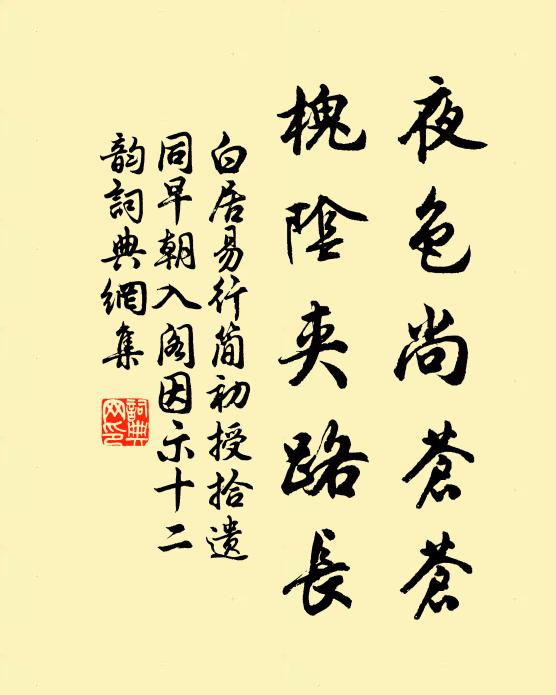 夜色尚蒼蒼
槐陰夾路長
白居易行简初授拾遗
同早朝入阁因示十二
韵詞典網集
詞典
网印